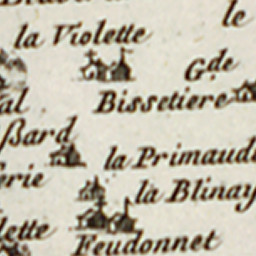 le
la Violette
G.de
al
Bissetiere
ßard
la Primaud
erie
la Blinay
lette
Feudonnet